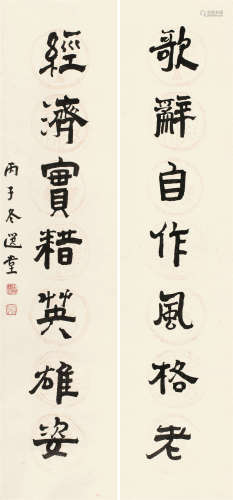 歌辭自作風格老
經濟實藉英雄姿
丙子冬選堂